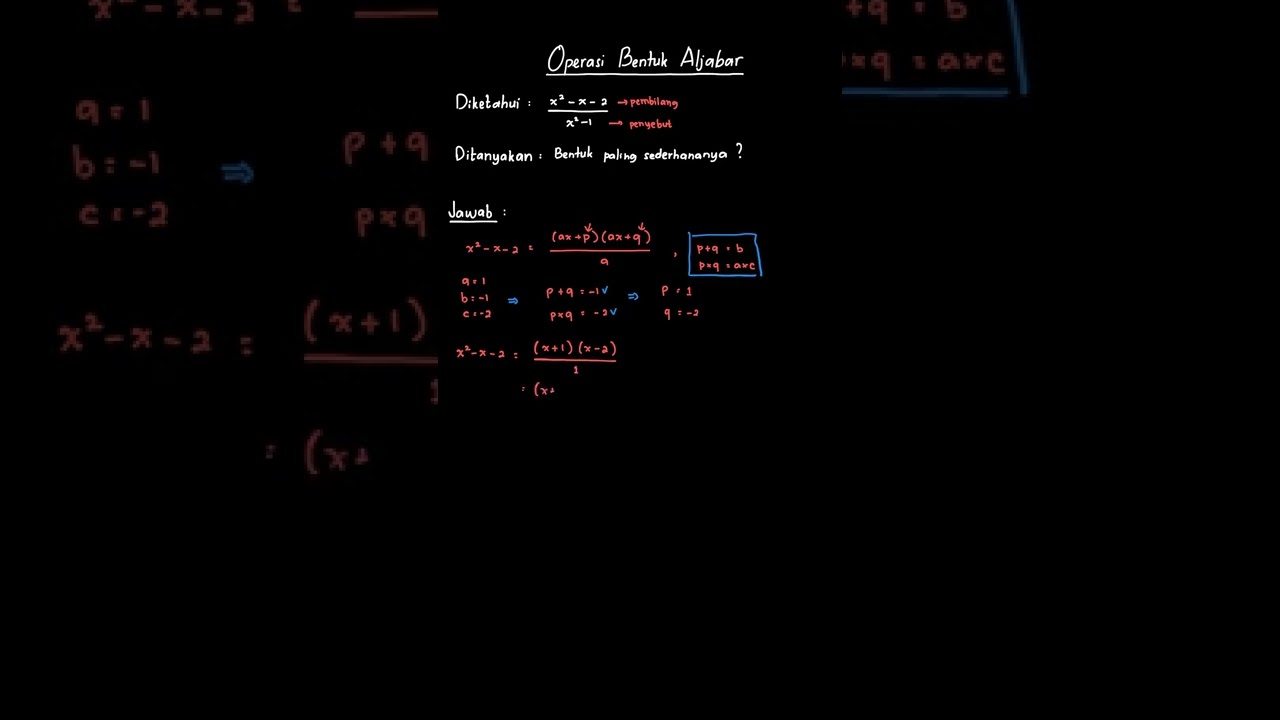 Operasi Bentuk Aljabar
Diketahui : x² - x - 2 → pembilang
x² - 1 → penyebut
Ditanyakan : Bentuk paling sederhananya ?
Jawab :
x² - x - 2 = (ax + p)(ax + q) / a , p + q = b
p × q = a × c
a = 1
b = -1 ⇒ p + q = -1 ✓ ⇒ p = 1
c = -2 p × q = -2 ✓ q = -2
x² - x - 2 = (x + 1)(x - 2) / 1
= (x +